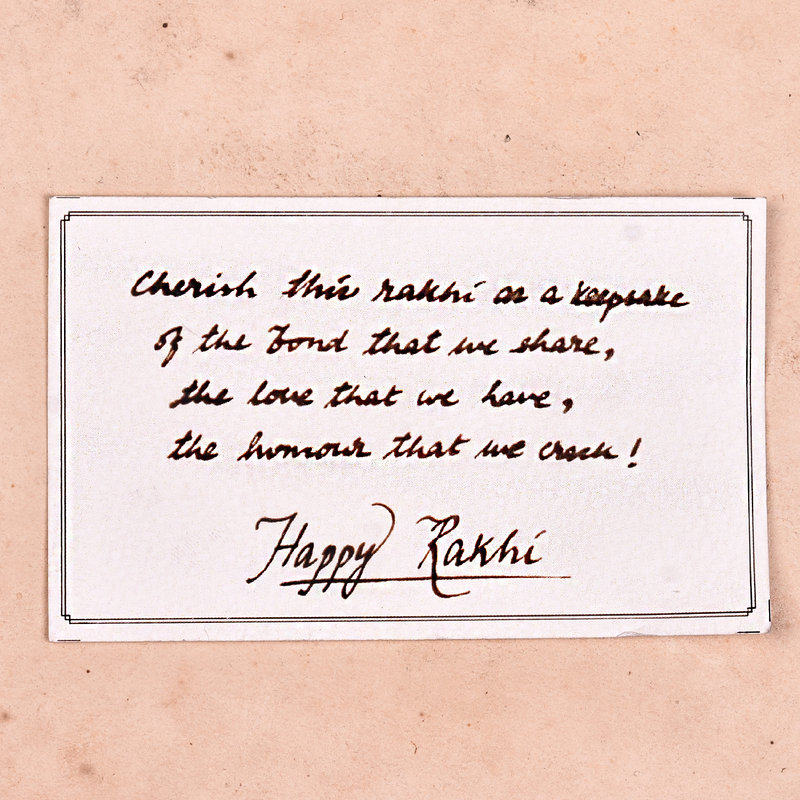 Cherish this rakhi as a keepsake
of the bond that we share,
the love that we have,
the humour that we crack!
Happy Rakhi